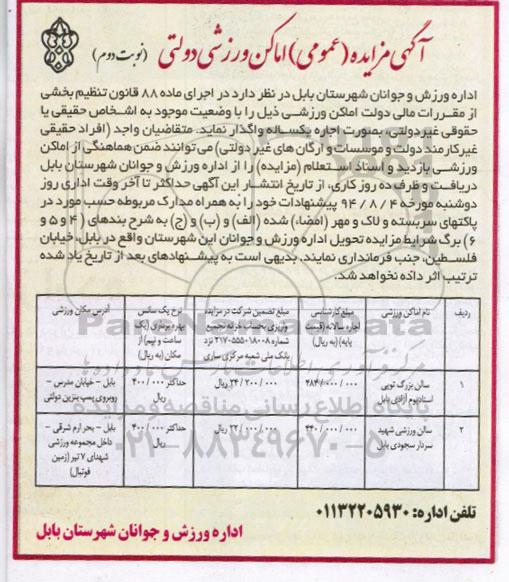 آگهی مزایده (عمومی) اماکن ورزشی دولتی (نوبت دوم)
اداره ورزش و جوانان شهرستان بابل در نظر دارد در اجرای ماده ۸۸ قانون تنظیم بخشی
از مقررات مالی دولت اماکن ورزشی ذیل را با وضعیت موجود به اشخاص حقیقی یا
حقوقی غیردولتی، بصورت اجاره یکساله واگذار نماید. متقاضیان واجد (افراد حقیقی
غیرکارمند دولت و موسسات و ارگان های غیر دولتی) می توانند ضمن هماهنگی از اماکن
ورزشی بازدید و اسناد استعلام (مزایده) را از اداره ورزش و جوانان شهرستان بابل
دریافت و ظرف ده روز کاری، از تاریخ انتشار این آگهی حداکثر تا آخر وقت اداری روز
دوشنبه مورخه ۹۴/۸/۴ پیشنهادات خود را به همراه مدارک مربوطه حسب مورد در
پاکتهای سربسته و لاک و مهر (امضاء) شده (الف) و (ب) و (ج) به شرح بندهای (۴ و ۵ و
۶) برگ شرایط مزایده تحویل اداره ورزش و جوانان این شهرستان واقع در بابل، خیابان
فلسطین، جنب فرمانداری نمایند. بدیهی است به پیشنهادهای بعد از تاریخ یاد شده
ترتیب اثر داده نخواهد شد.
ردیف نام اماکن ورزشی مبلغ کارشناسی اجاره سالانه (قیمت پایه) (به ریال) مبلغ تضمین شرکت در مزایده واریزی بحساب خزانه تجمیع شماره ۲۱۷۰۵۵۵۰۱۸۰۰۸ نزد بانک ملی شعبه مرکزی ساری نرخ یک سانس بهره برداری (یک ساعت و نیم) از مکان (به ریال) آدرس مکان ورزشی
۱ سالن بزرگ توپی استادیوم آزادی بابل ۴۸۴/۰۰۰/۰۰۰ ۲۴/۲۰۰/۰۰۰ ریال حداکثر ۴۰۰/۰۰۰ ریال بابل – خیابان مدرس – روبروی پمپ بنزین دولتی
۲ سالن ورزشی شهید سردار سجودی بابل ۴۴۰/۰۰۰/۰۰۰ ۲۲/۰۰۰/۰۰۰ ریال حداکثر ۴۰۰/۰۰۰ ریال بابل – بحر ارم شرقی – داخل مجموعه ورزشی شهدای ۷ تیر (زمین فوتبال)
پایگاه اطلاع رسانی مناقصه و مزایده
۰۲۱-۸۸۳۴۹۶۷۰-۵
تلفن اداره: ۰۱۱۳۲۲۰۵۹۳۰
اداره ورزش و جوانان شهرستان بابل